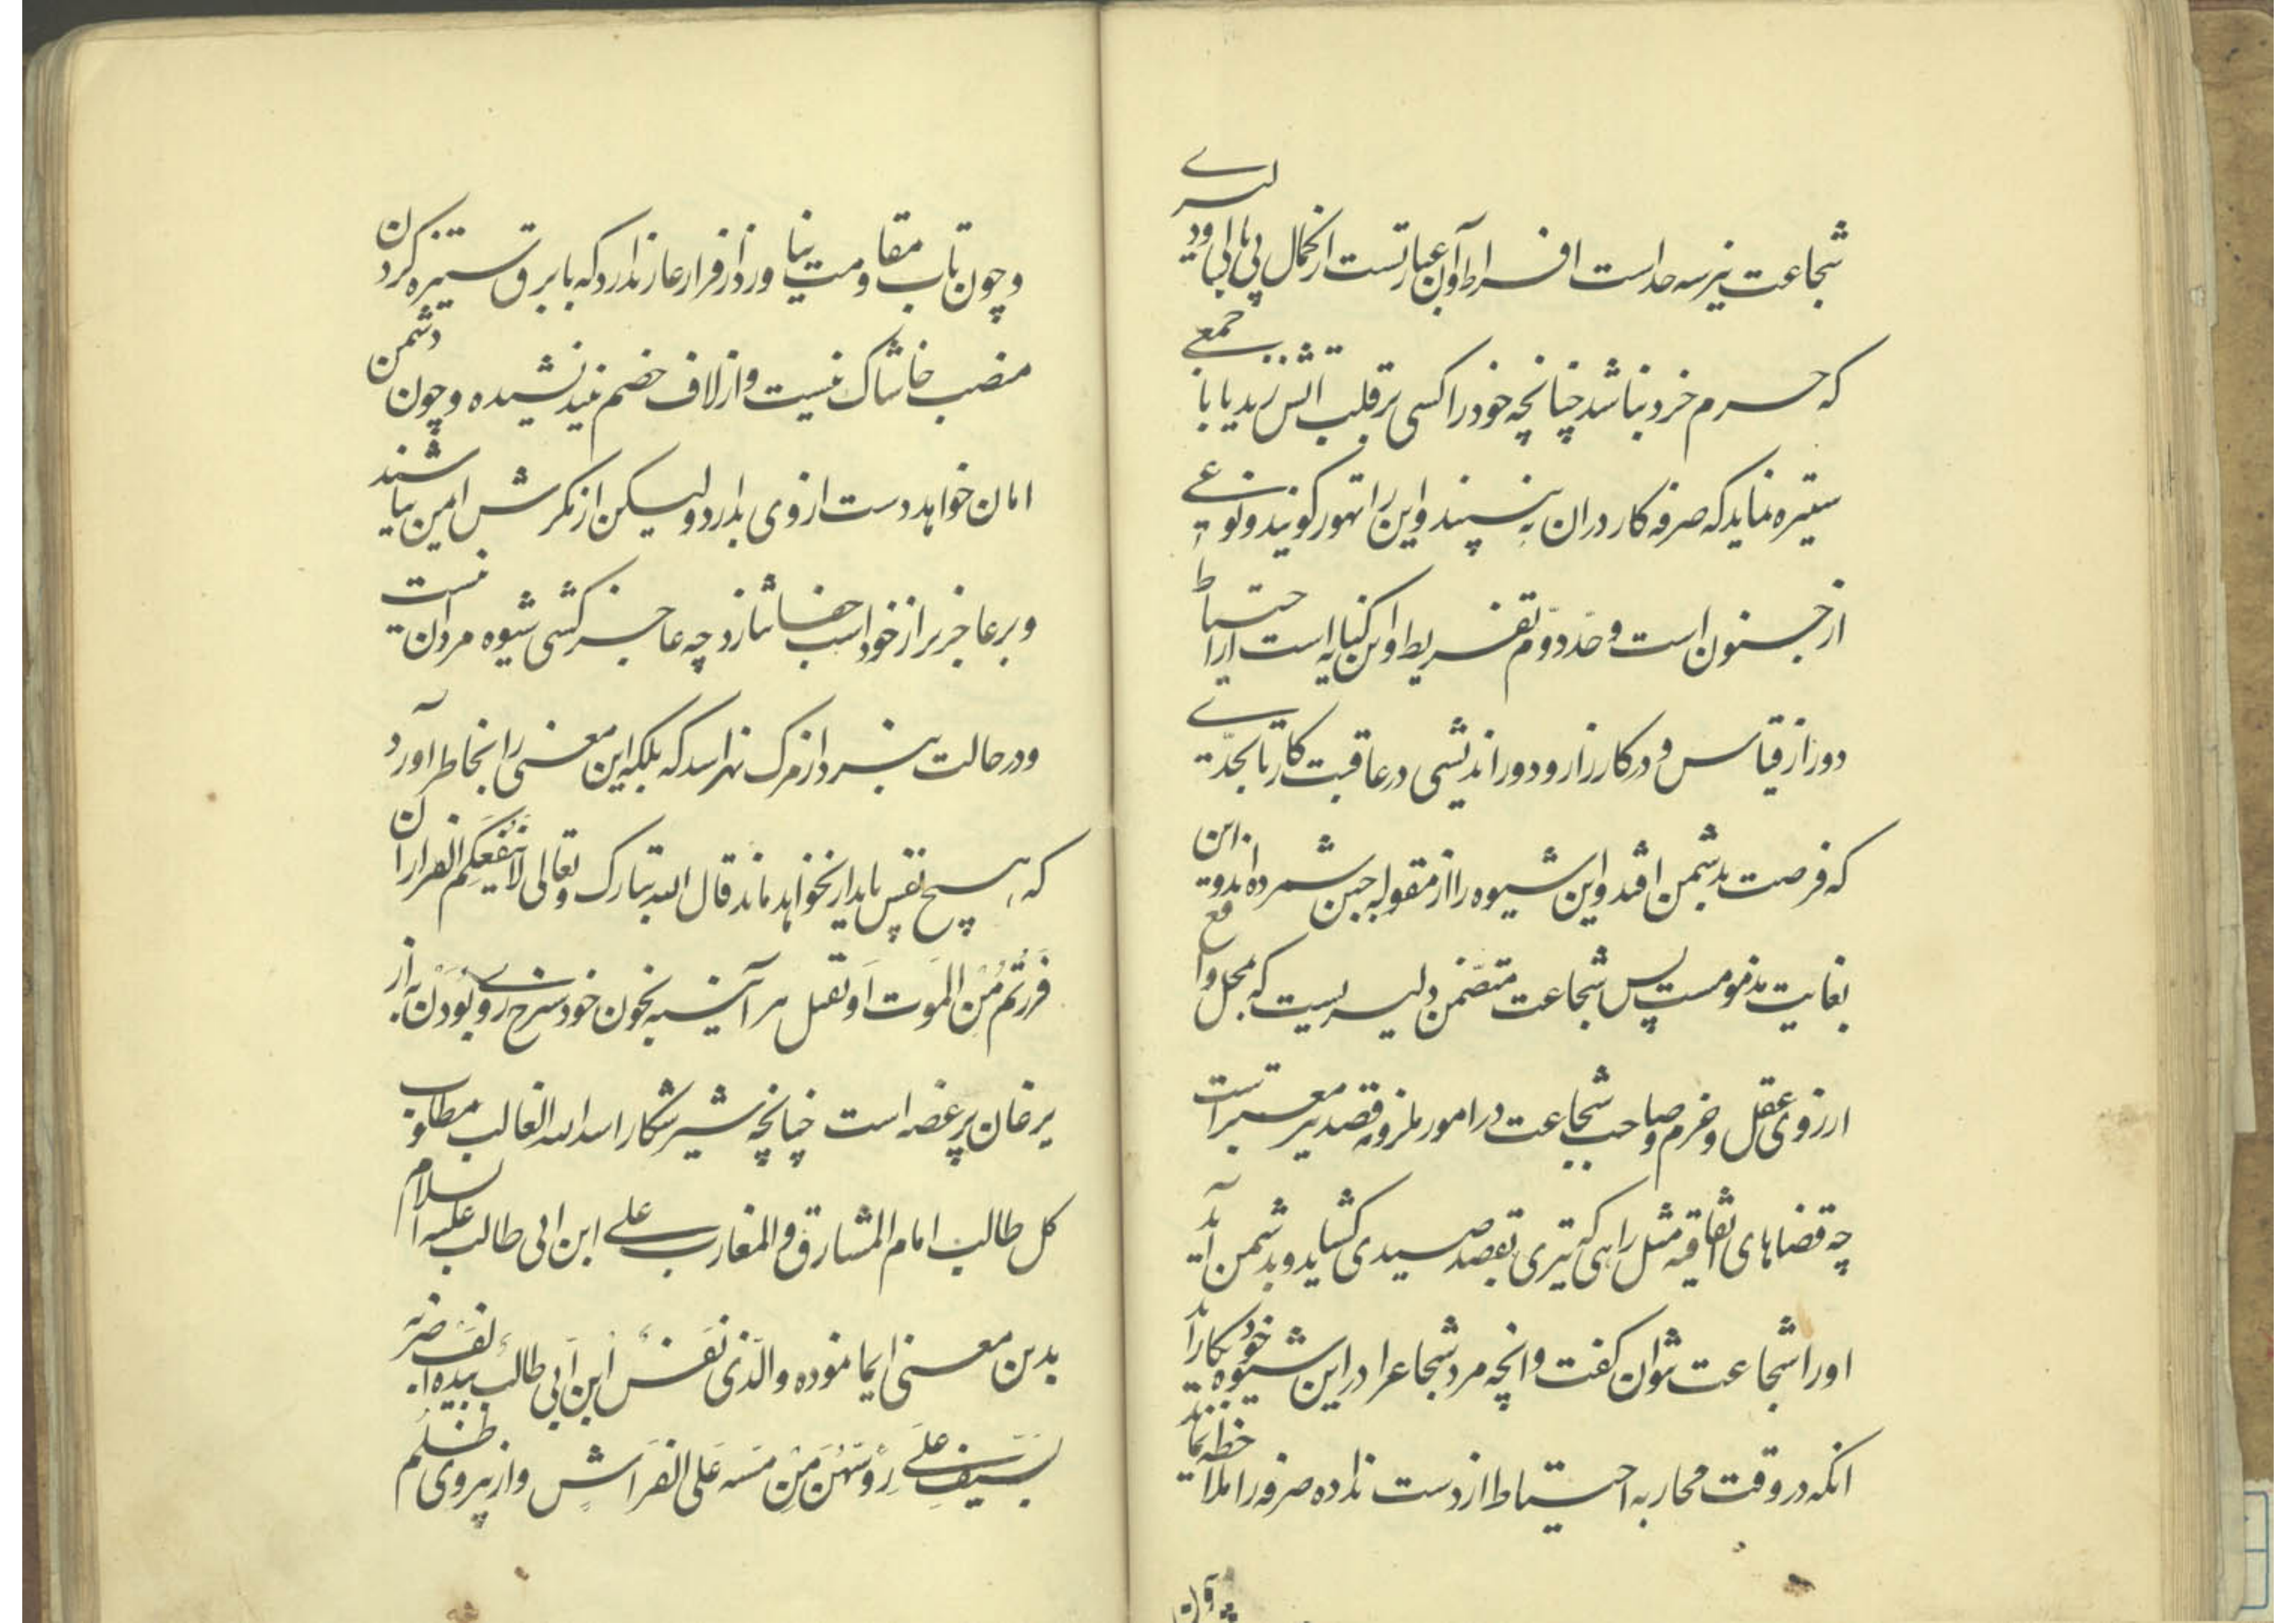 شجاعت نیز سه حد است افراط و آن عبارتست از کمال بی باکی و دلیری
که حسرم خرد نباشد چنانچه خود را کسی بر قلب آتش زند یا با جمعی
ستیزه نماید که صرفه کار در ان نه بیند و این را تهور کویند و نوعی
از جنون است و حد دوم تفریط و ان کنایه است از احتیاط
دور از قیاس و در کارزار و دور اندیشی در عاقبت کار تا بحدیتی
که فرصت بدشمن افتد و این شیوه را از مقوله جبن شمرده اند و این
بغایت مذمومست پس شجاعت متضمن دلیریست که بمحل واقع
از روی عقل و حزم و صاحب شجاعت در امور ملزومه قصد نیز معتبر است
چه قضاهای اتفاقیه مثل راهی که تیری بقصد صیدی کشاید و بدشمن آید
او را شجاعت نتوان کفت و انچه مرد شجاع را در این شیوه بکار آید
انکه در وقت محاربه احتیاط از دست نداده صرفه را ملاحظه نماید
و چون تاب مقاومت نیاورد از فرار عار ندارد که با برق ستیزه کردن
منصب خاشاک نیست و از لاف خصم نیندیشیده و چون دشمن
امان خواهد دست از وی بدارد ولیکن از مکرش امین نباشند
و بر عاجزتر از خود اسب جفا نتازد چه عاجز کشی شیوه مردان نیست
و در حالت نبرد از مرک نهراسد که بلکه این معنی را بخاطر آورد
که هیچ نفس پایدار نخواهد ماند قال الله تبارک و تعالی لا ینفعکم الفرار ان
فررتم من الموت او القتل هر آینه بخون خود سرخ روی بودن به از
یرغان پر غصه است چنانچه شیر شکار اسد الله الغالب مطلوب
کل طالب امام المشارق و المغارب علی ابن ابی طالب علیه السلام
بدین معنی ایما نموده والذی نفس ابن ابی طالب بیده الف ضربه
بسیف علی روسهن من مسه علی الفراش و از پیروی ظلم